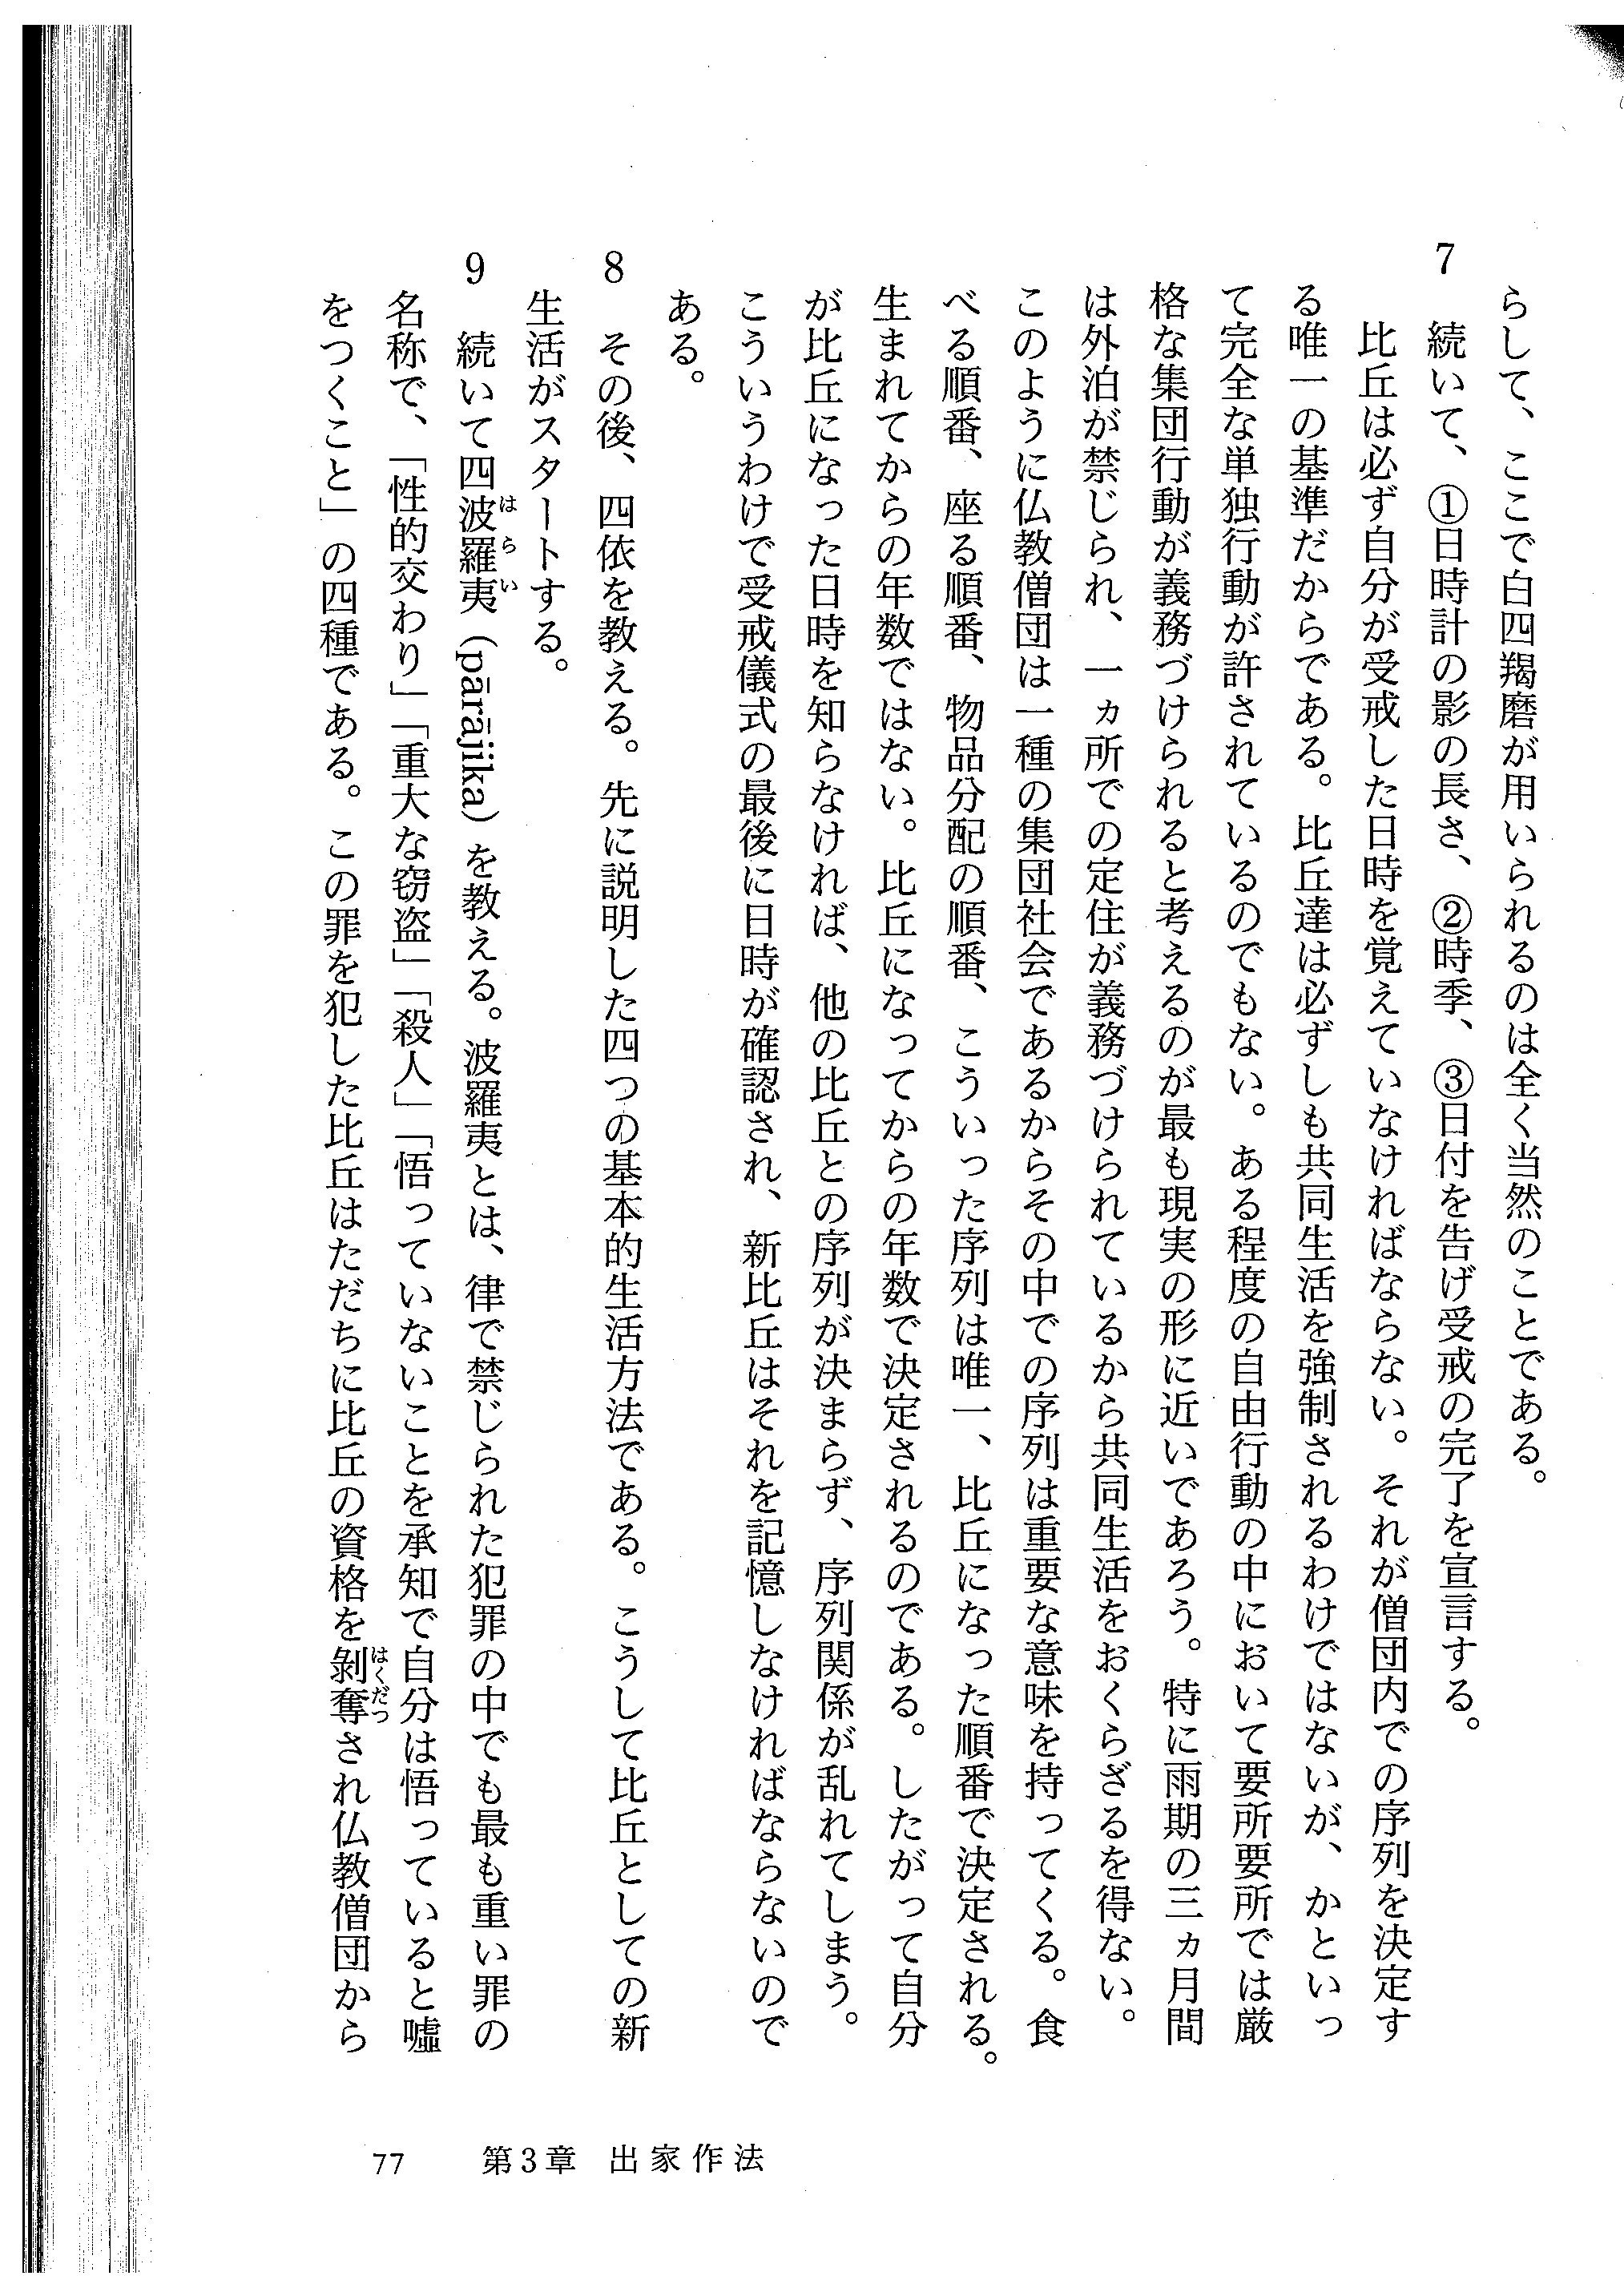 らして、ここで白四羯磨が用いられるのは全く当然のことである。
7　続いて、①日時計の影の長さ、②時季、③日付を告げ受戒の完了を宣言する。
比丘は必ず自分が受戒した日時を覚えていなければならない。それが僧団内での序列を決定す
る唯一の基準だからである。比丘達は必ずしも共同生活を強制されるわけではないが、かといっ
て完全な単独行動が許されているのでもない。ある程度の自由行動の中において要所要所では厳
格な集団行動が義務づけられると考えるのが最も現実の形に近いであろう。特に雨期の三ヵ月間
は外泊が禁じられ、一ヵ所での定住が義務づけられているから共同生活をおくらざるを得ない。
このように仏教僧団は一種の集団社会であるからその中での序列は重要な意味を持ってくる。食
べる順番、座る順番、物品分配の順番、こういった序列は唯一、比丘になった順番で決定される。
生まれてからの年数ではない。比丘になってからの年数で決定されるのである。したがって自分
が比丘になった日時を知らなければ、他の比丘との序列が決まらず、序列関係が乱れてしまう。
こういうわけで受戒儀式の最後に日時が確認され、新比丘はそれを記憶しなければならないので
ある。
8　その後、四依を教える。先に説明した四つの基本的生活方法である。こうして比丘としての新
生活がスタートする。
9　続いて四波羅夷（pārājika）を教える。波羅夷とは、律で禁じられた犯罪の中でも最も重い罪の
はらい
名称で、「性的交わり」「重大な窃盗」「殺人」「悟っていないことを承知で自分は悟っていると嘘
をつくこと」の四種である。この罪を犯した比丘はただちに比丘の資格を剝奪され仏教僧団から
はくだつ
77　第3章　出家作法